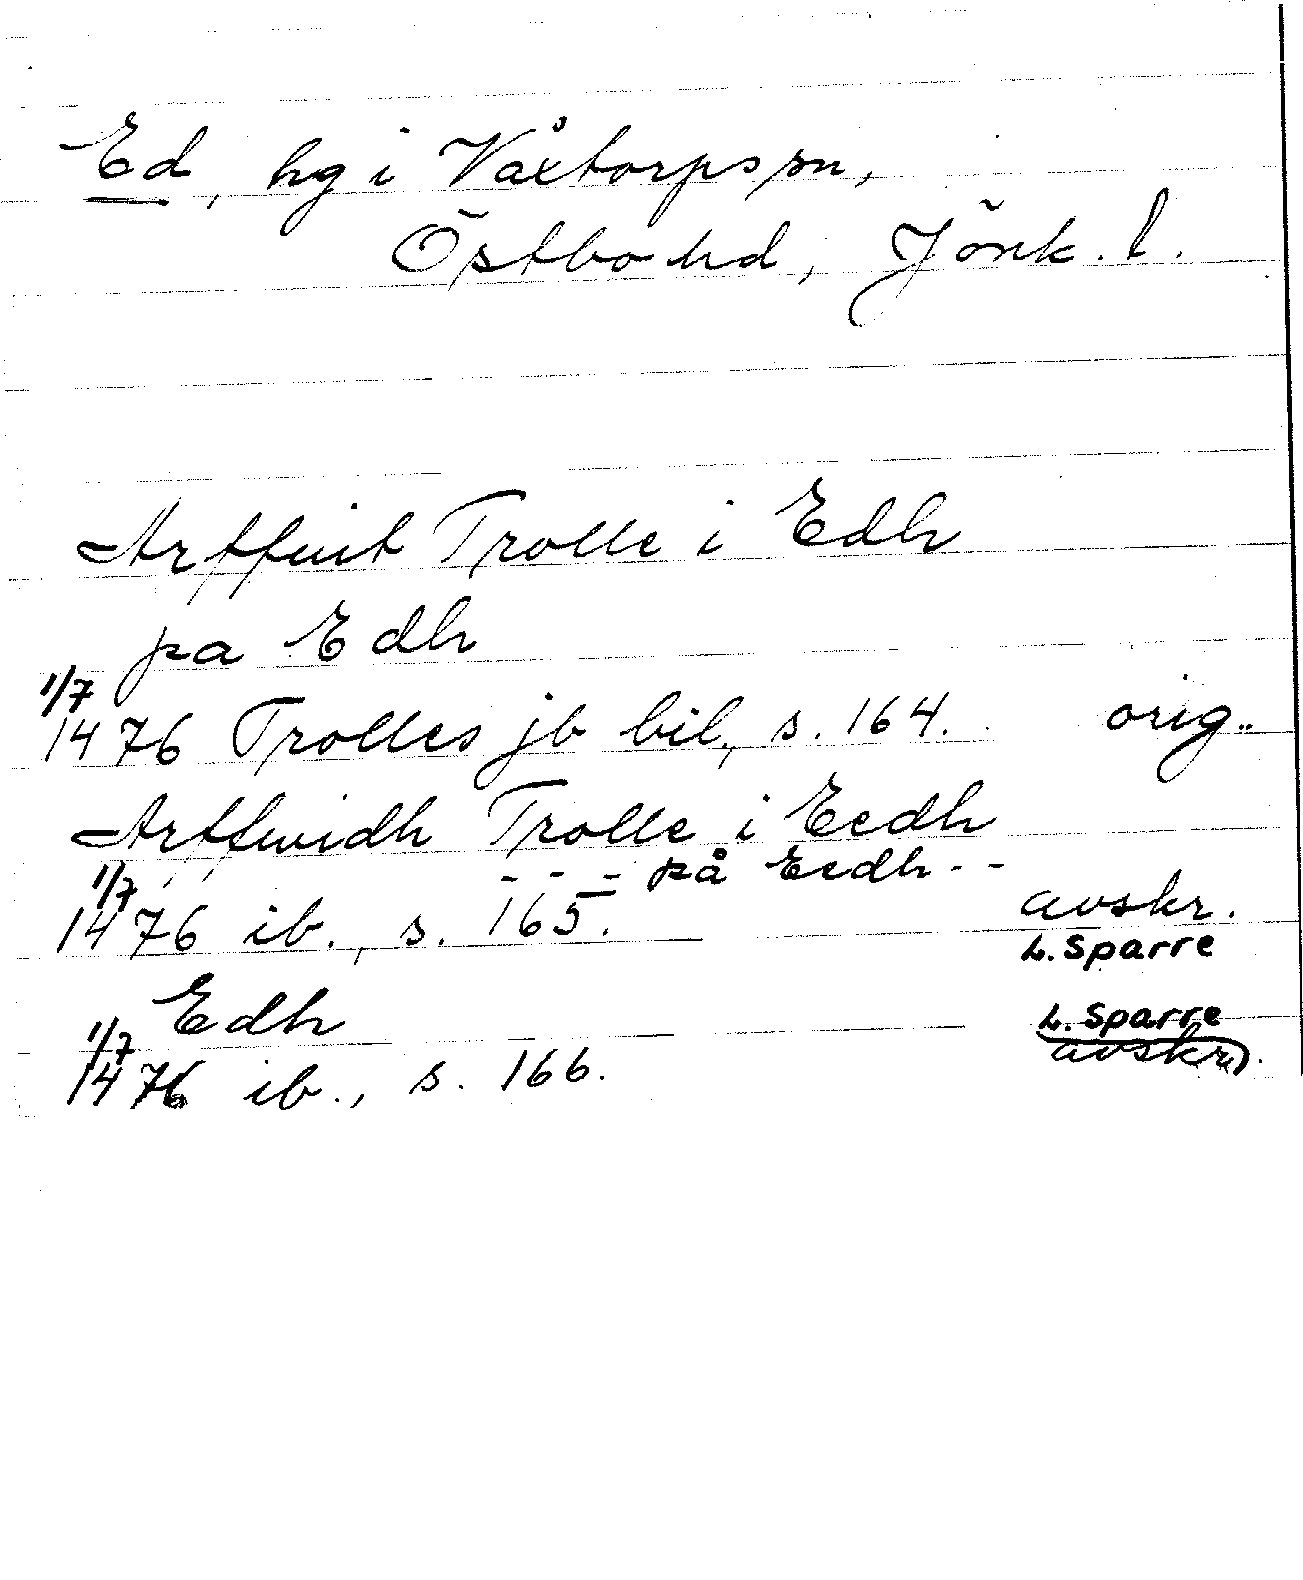 Ed, hg i Våxtorps sn,
Östbo hd, Jönk. l.
Arffuit Trolle i Edh
pa Edh
1/7
1476 Trolles jb bil., s. 164. orig.
Arffwidh Trolle i Eedh
- - - på Eedh - -
1/7
1476 ib., s. 165. avskr.
L. Sparre
Edh
L. Sparre
1/7
1476 ib., s. 166. avskr.